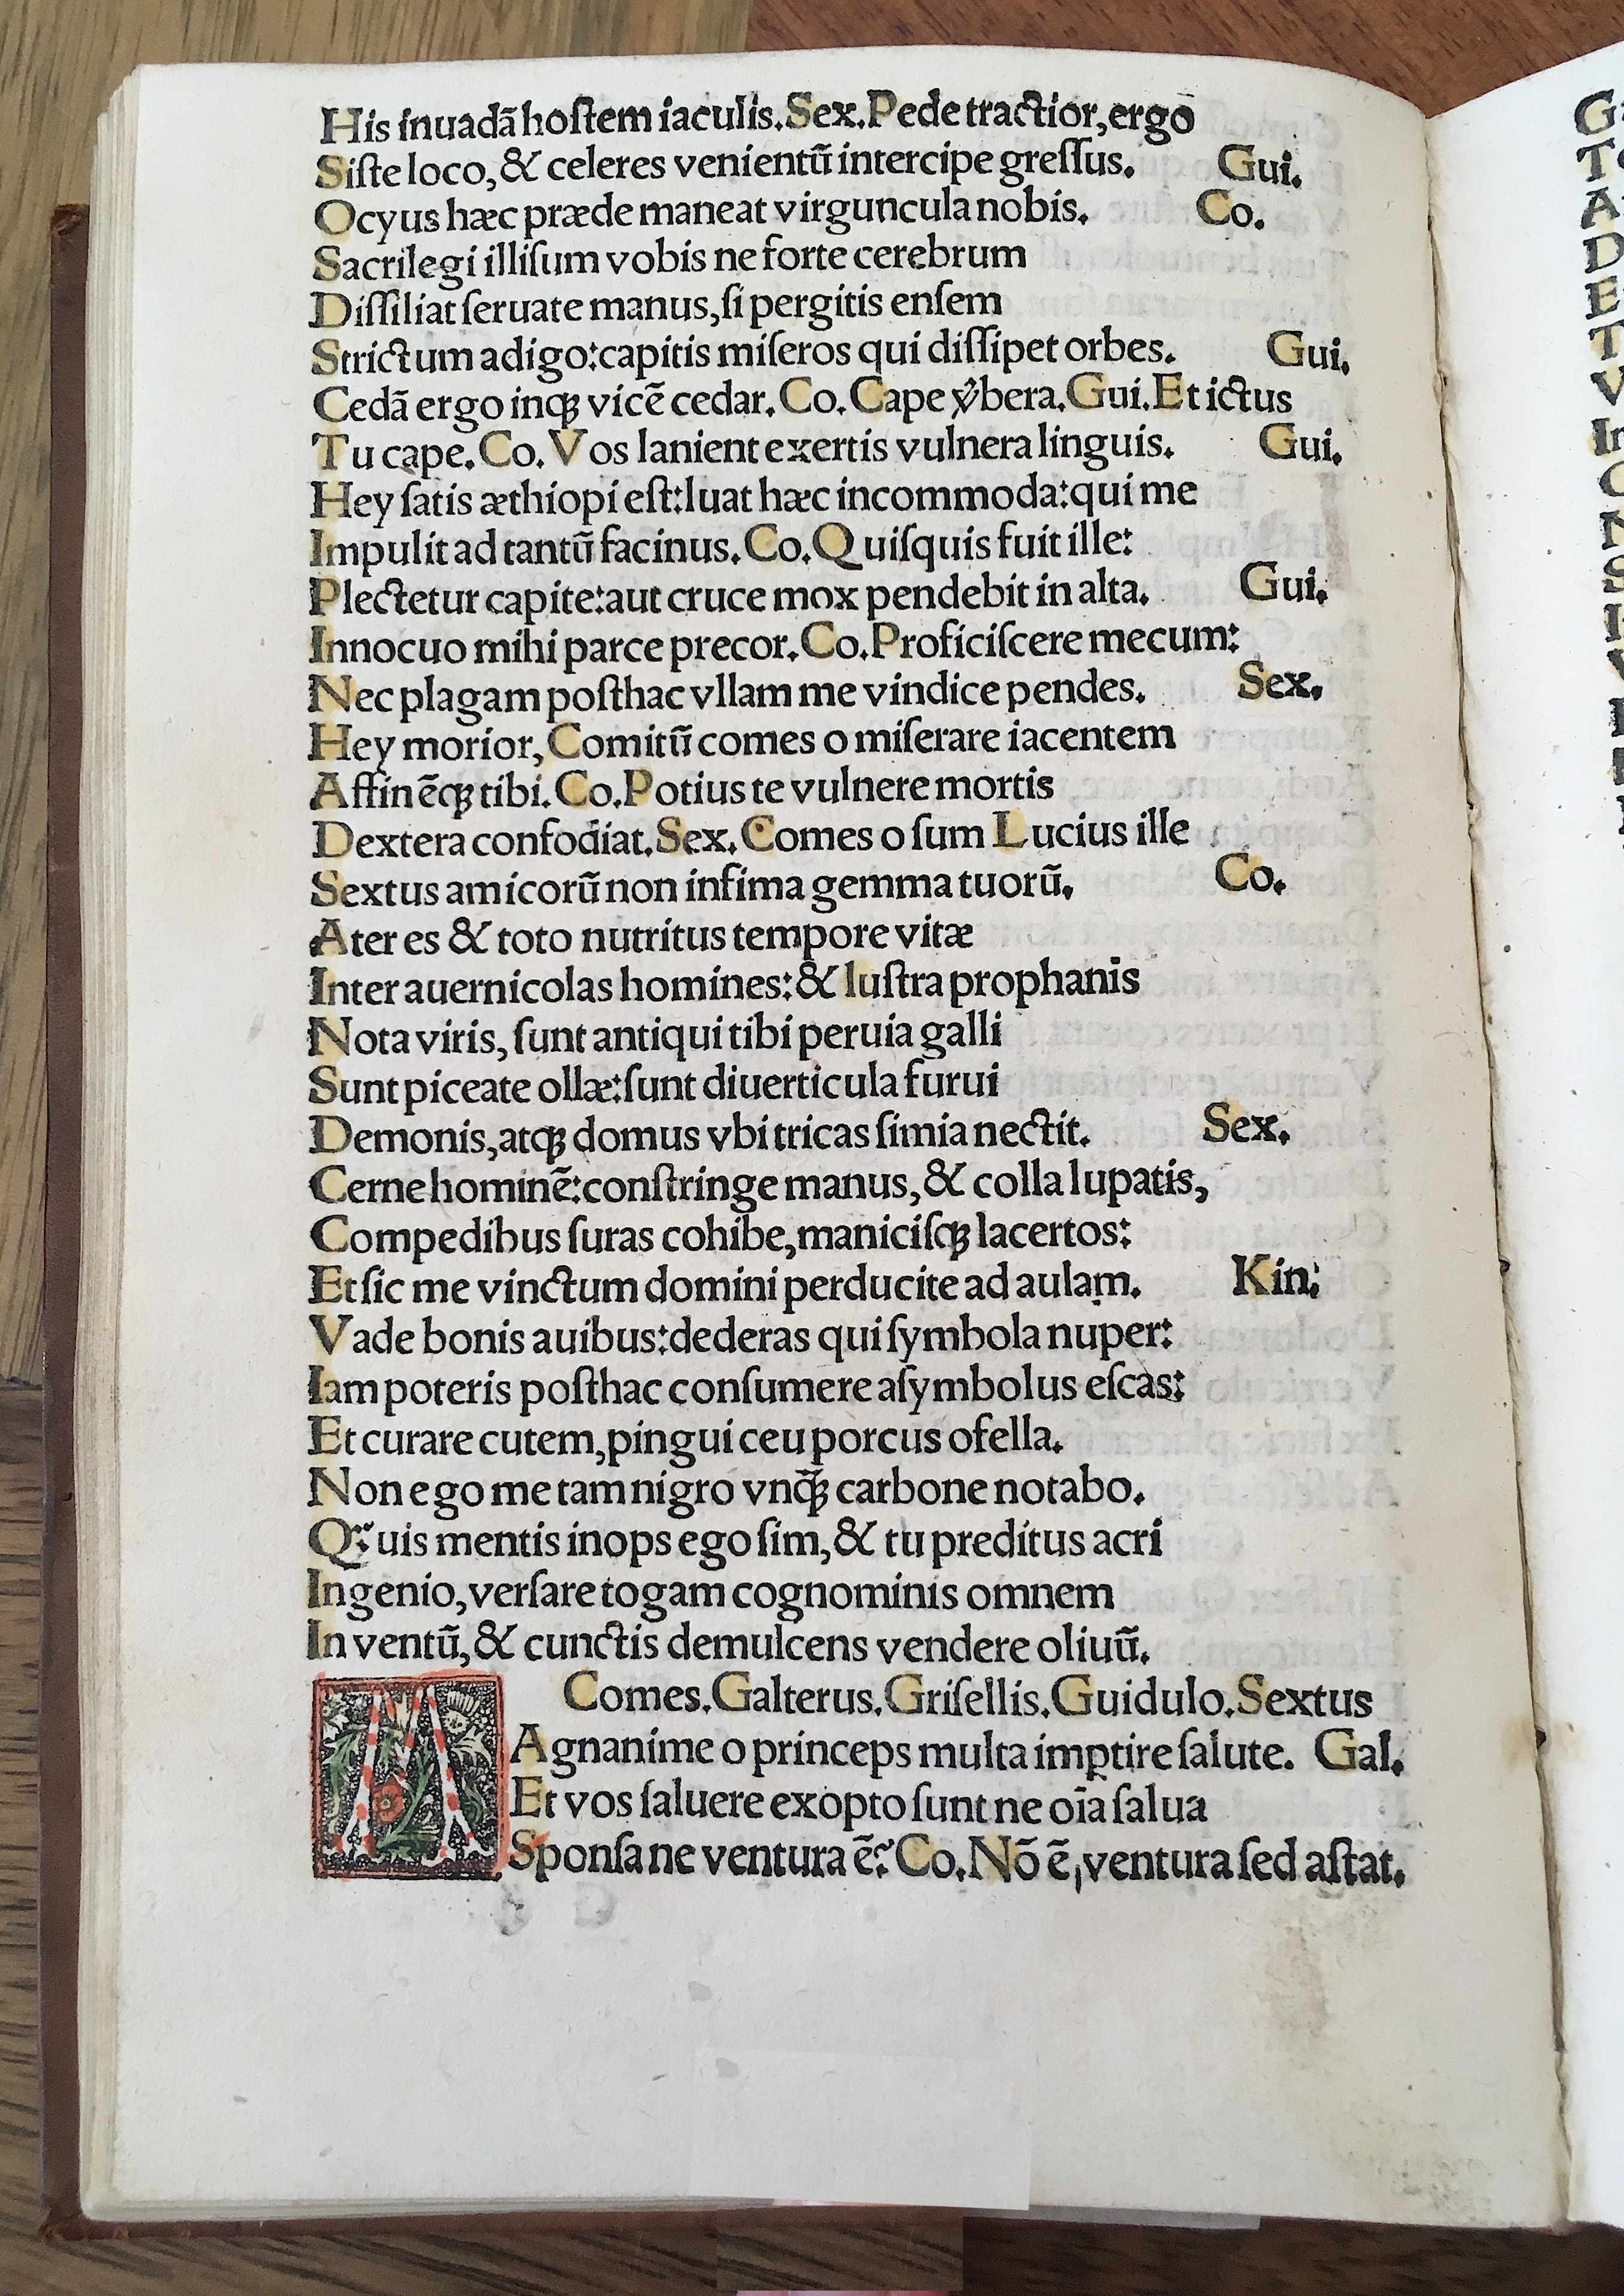 His inuadā hoſtem iaculis. Sex. Pede tractior, ergo
Siſte loco, & celeres venientū intercipe greſſus. Gui.
Ocyus hæc præde maneat virguncula nobis. Co.
Sacrilegi illiſum vobis ne forte cerebrum
Diſſiliat ſeruate manus, ſi pergitis enſem
Strictum adigo: capitis miſeros qui diſſipet orbes. Gui.
Cedā ergo inqꝫ vicē cedar. Co. Cape v̄bera. Gui. Et ictus
Tu cape. Co. Vos lanient exertis vulnera linguis. Gui.
Hey ſatis æthiopi eſt: luat hæc incommoda: qui me
Impulit ad tantū facinus. Co. Quiſquis fuit ille:
Plectetur capite: aut cruce mox pendebit in alta. Gui.
Innocuo mihi parce precor. Co. Proficiſcere mecum:
Nec plagam poſthac vllam me vindice pendes. Sex.
Hey morior, Comitū comes o miſerare iacentem
Affinēqꝫ tibi. Co. Potius te vulnere mortis
Dextera confodiat. Sex. Comes o ſum Lucius ille
Sextus amicorū non infima gemma tuorū. Co.
Ater es & toto nutritus tempore vitæ
Inter auernicolas homines: & luſtra prophanis
Nota viris, ſunt antiqui tibi peruia galli
Sunt piceate ollæ: ſunt diuerticula furui
Demonis, atqꝫ domus vbi tricas ſimia nectit. Sex.
Cerne hominē: conſtringe manus, & colla lupatis,
Compedibus ſuras cohibe, maniciſqꝫ lacertos:
Et ſic me vinctum domini perducite ad aulam. Kin:
Vade bonis auibus: dederas qui ſymbola nuper:
Iam poteris poſthac conſumere aſymbolus eſcas:
Et curare cutem, pingui ceu porcus ofella.
Non ego me tam nigro vnq̄ꝫ carbone notabo.
Q̃uis mentis inops ego ſim, & tu preditus acri
Ingenio, verſare togam cognominis omnem
In ventū, & cunctis demulcens vendere oliuū.
Comes. Galterus. Griſellis. Guidulo. Sextus
MAgnanime o princeps multa imꝑtire ſalute. Gal.
Et vos ſaluere exopto ſunt ne oīa ſalua
Sponſa ne ventura ē? Co. Nō ē, ventura ſed aſtat.